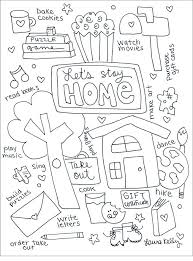 bake
cookies
PUZZLE
game
watch
movies
read books
Let's stay
HOME
make art
play
music
sing
dance
Take
out
cook
hike
build
puzzles
GIFT
certificate
write
letters
order take out
Laura Kelly